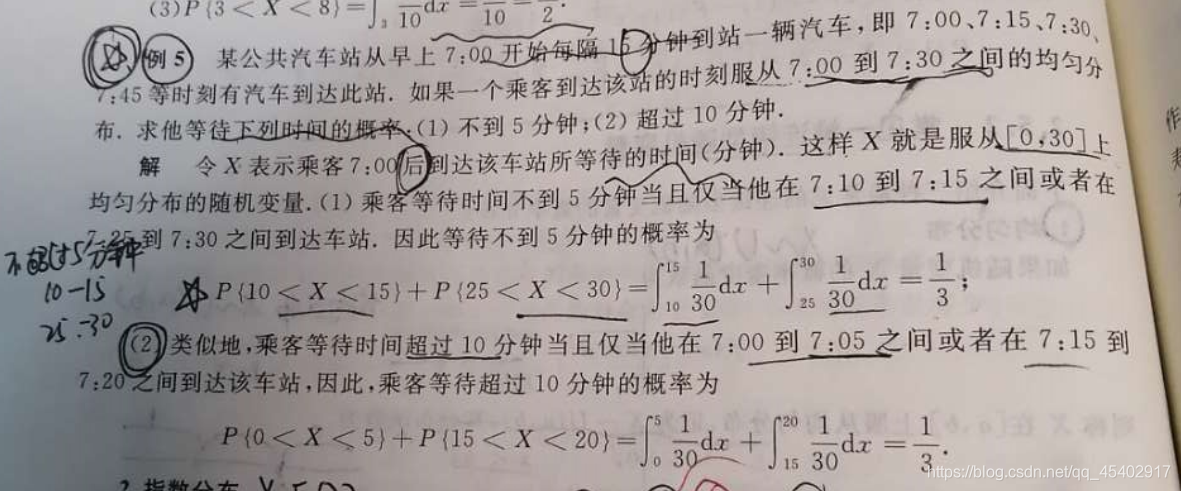 (3) P{3 < X < 8} = ∫₃ 1/10 dx = /10 = /2.
例 5 某公共汽车站从早上 7:00 开始每隔 15 分钟到站一辆汽车,即 7:00、7:15、7:30、
7:45 等时刻有汽车到达此站. 如果一个乘客到达该站的时刻服从 7:00 到 7:30 之间的均匀分
布. 求他等待下列时间的概率.(1) 不到 5 分钟;(2) 超过 10 分钟.
解 令 X 表示乘客 7:00 后到达该车站所等待的时间(分钟). 这样 X 就是服从[0,30]上
均匀分布的随机变量.(1) 乘客等待时间不到 5 分钟当且仅当他在 7:10 到 7:15 之间或者在
7:25 到 7:30 之间到达车站. 因此等待不到 5 分钟的概率为
5分钟
10-15
25-30
P{10 < X < 15} + P{25 < X < 30} = ∫₁₀¹⁵ 1/30 dx + ∫₂₅³⁰ 1/30 dx = 1/3;
(2) 类似地,乘客等待时间超过 10 分钟当且仅当他在 7:00 到 7:05 之间或者在 7:15 到
7:20 之间到达该车站,因此,乘客等待超过 10 分钟的概率为
P{0 < X < 5} + P{15 < X < 20} = ∫₀⁵ 1/30 dx + ∫₁₅²⁰ 1/30 dx = 1/3.
2. 指数分布
https://blog.csdn.net/qq_45402917